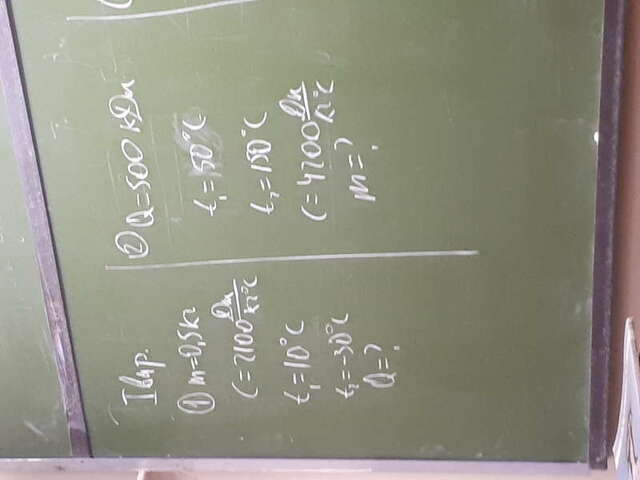 I вар.
① m=0,5кг
C=2100 Дж/кг°C
t₁=10°C
t₂=-30°C
Q=?
② Q=500 кДж
t₁=50°C
t₂=150°C
C=4200 Дж/кг°C
m=?